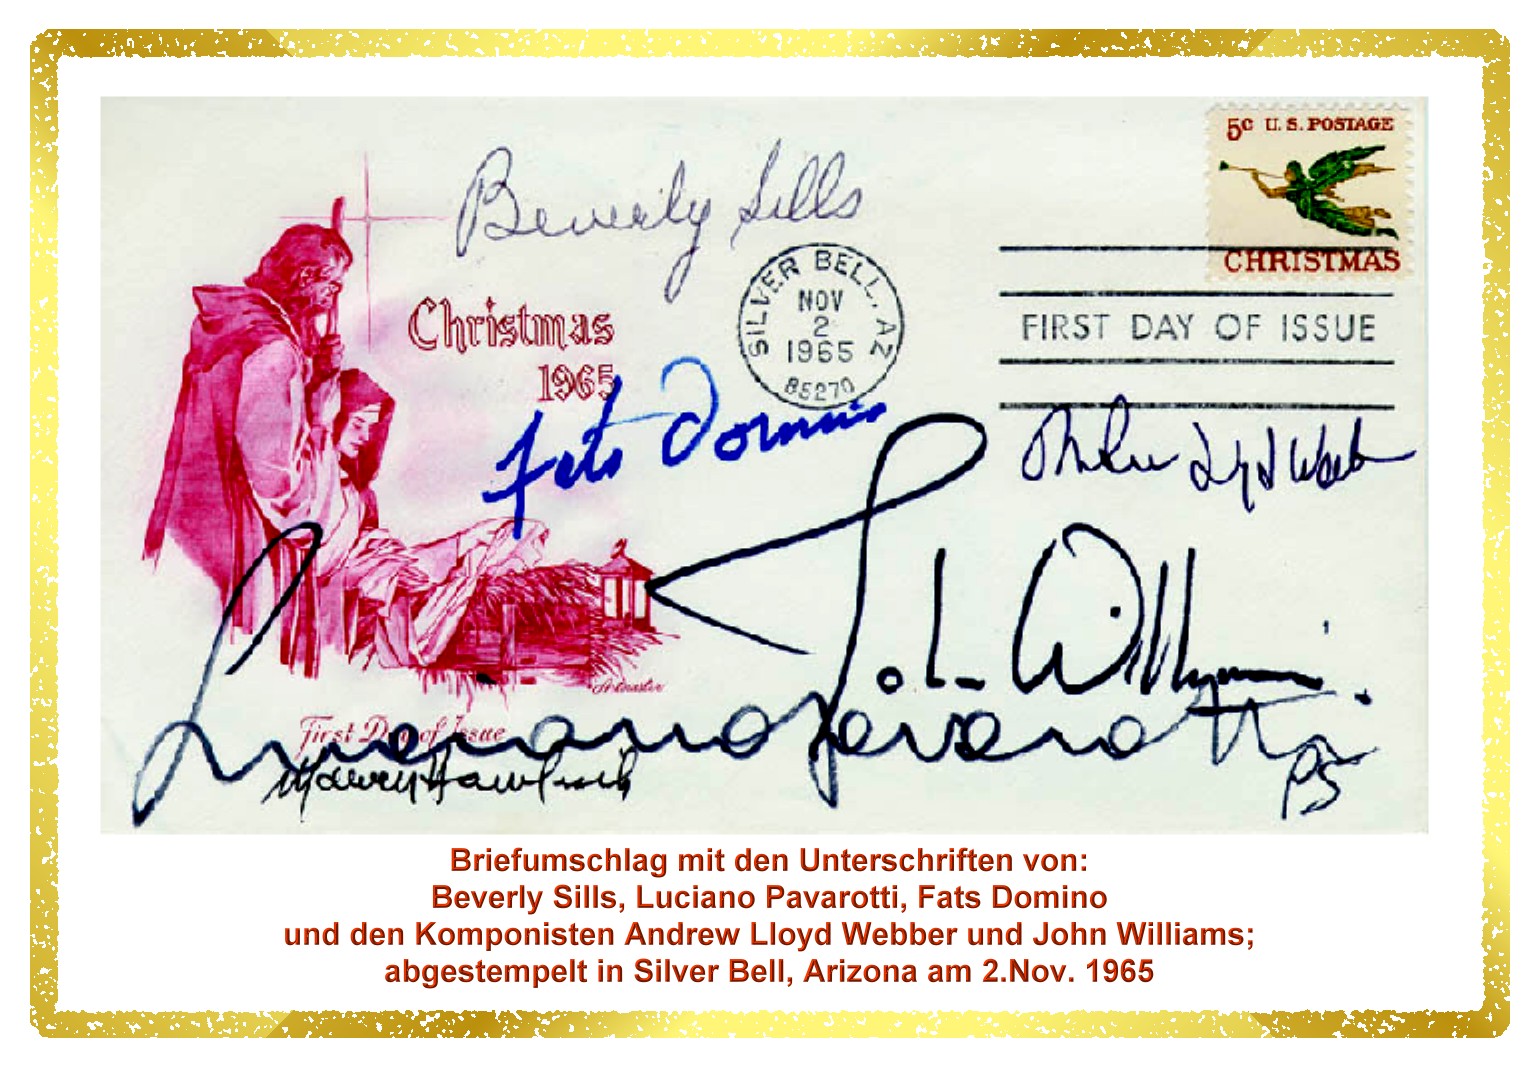 5c U.S. POSTAGE
CHRISTMAS
Beverly Sills
SILVER BELL, AZ
NOV
2
1965
85270
FIRST DAY OF ISSUE
Christmas
1965
Fats Domino
Andrew Lloyd Webber
John Williams
Artmaster
First Day of Issue
Luciano Pavarotti
Marvin Hamlisch
Briefumschlag mit den Unterschriften von:
Beverly Sills, Luciano Pavarotti, Fats Domino
und den Komponisten Andrew Lloyd Webber und John Williams;
abgestempelt in Silver Bell, Arizona am 2.Nov. 1965